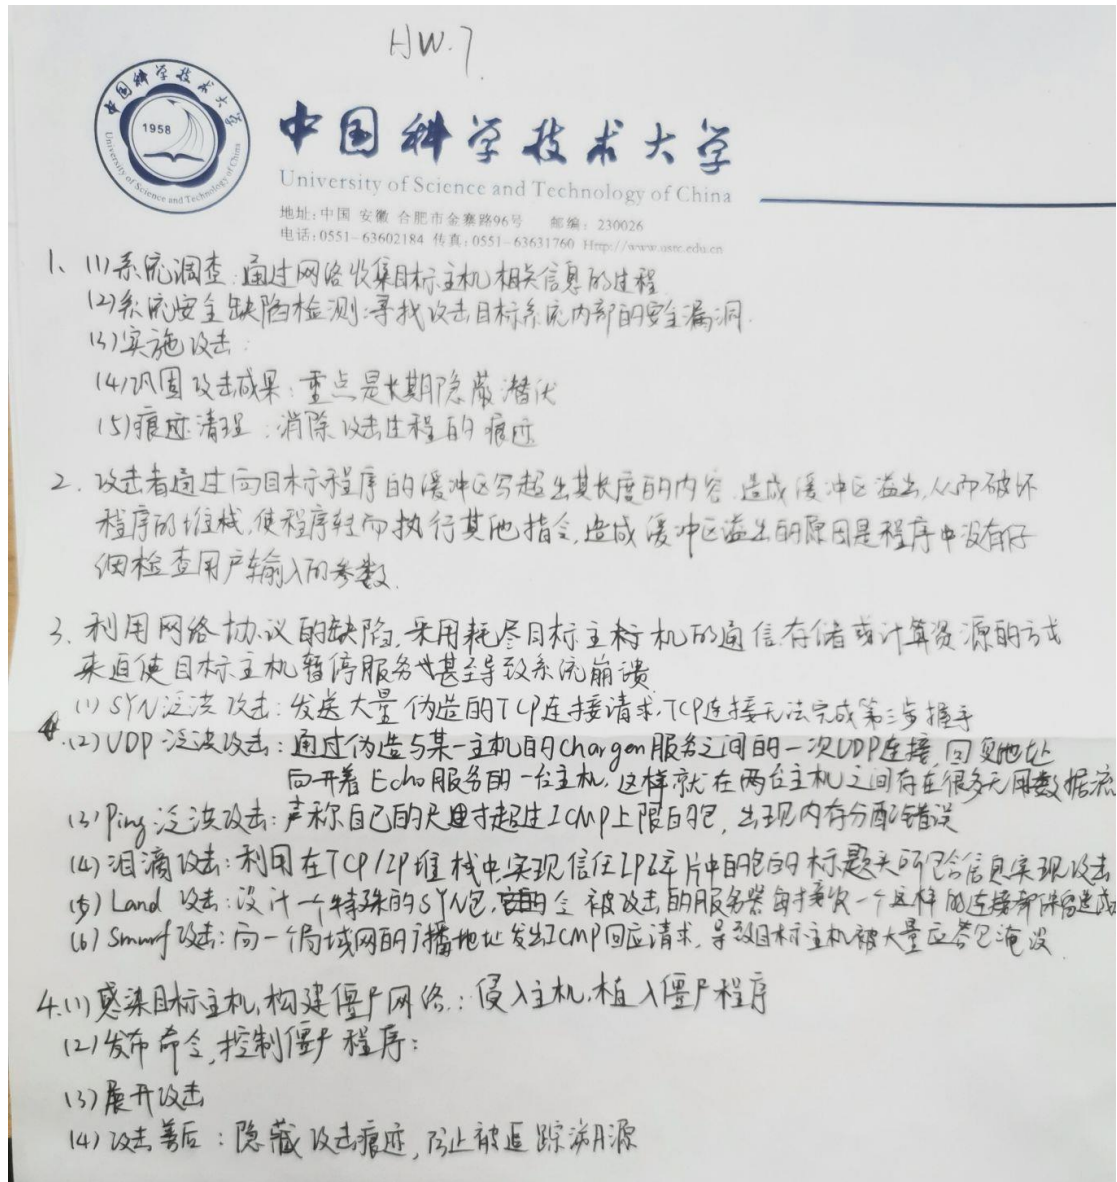 HW.7
中国科学技术大学
1958
University of Science and Technology of China
中国科学技术大学
University of Science and Technology of China
地址:中国 安徽 合肥市金寨路96号 邮编:230026
电话:0551-63602184 传真:0551-63631760 Http://www.ustc.edu.cn
1、(1)系统调查:通过网络收集目标主机相关信息的过程
(2)系统安全缺陷检测:寻找攻击目标系统内部的安全漏洞.
(3)实施攻击:
(4)巩固攻击成果:重点是长期隐蔽潜伏
(5)痕迹清理:消除攻击过程的痕迹
2. 攻击者通过向目标程序的缓冲区写超出其长度的内容,造成缓冲区溢出,从而破坏
程序的堆栈,使程序转而执行其他指令,造成缓冲区溢出的原因是程序中没有仔
细检查用户输入的参数.
3. 利用网络协议的缺陷,采用耗尽目标主机的通信、存储或计算资源的方式
来迫使目标主机暂停服务甚至导致系统崩溃
(1) SYN泛洪攻击:发送大量伪造的TCP连接请求,TCP连接无法完成第三步握手
(2) UDP泛洪攻击:通过伪造与某一主机的Chargen服务之间的一次UDP连接,回复地址
向开着Echo服务的一台主机,这样就在两台主机之间存在很多无用数据流
(3) Ping泛洪攻击:声称自己的尺寸超过ICMP上限的包,出现内存分配错误
(4) 泪滴攻击:利用在TCP/IP堆栈中实现信任IP碎片中的包的标题头所包含信息实现攻击
(5) Land 攻击:设计一个特殊的SYN包,令被攻击的服务器每接收一个这样的连接都将造成
(6) Smurf攻击:向一个局域网的广播地址发出ICMP回应请求,导致目标主机被大量应答包淹没.
4.(1)感染目标主机,构建僵尸网络:侵入主机,植入僵尸程序
(2)发布命令,控制僵尸程序:
(3)展开攻击
(4)攻击善后:隐藏攻击痕迹,防止被追踪溯源